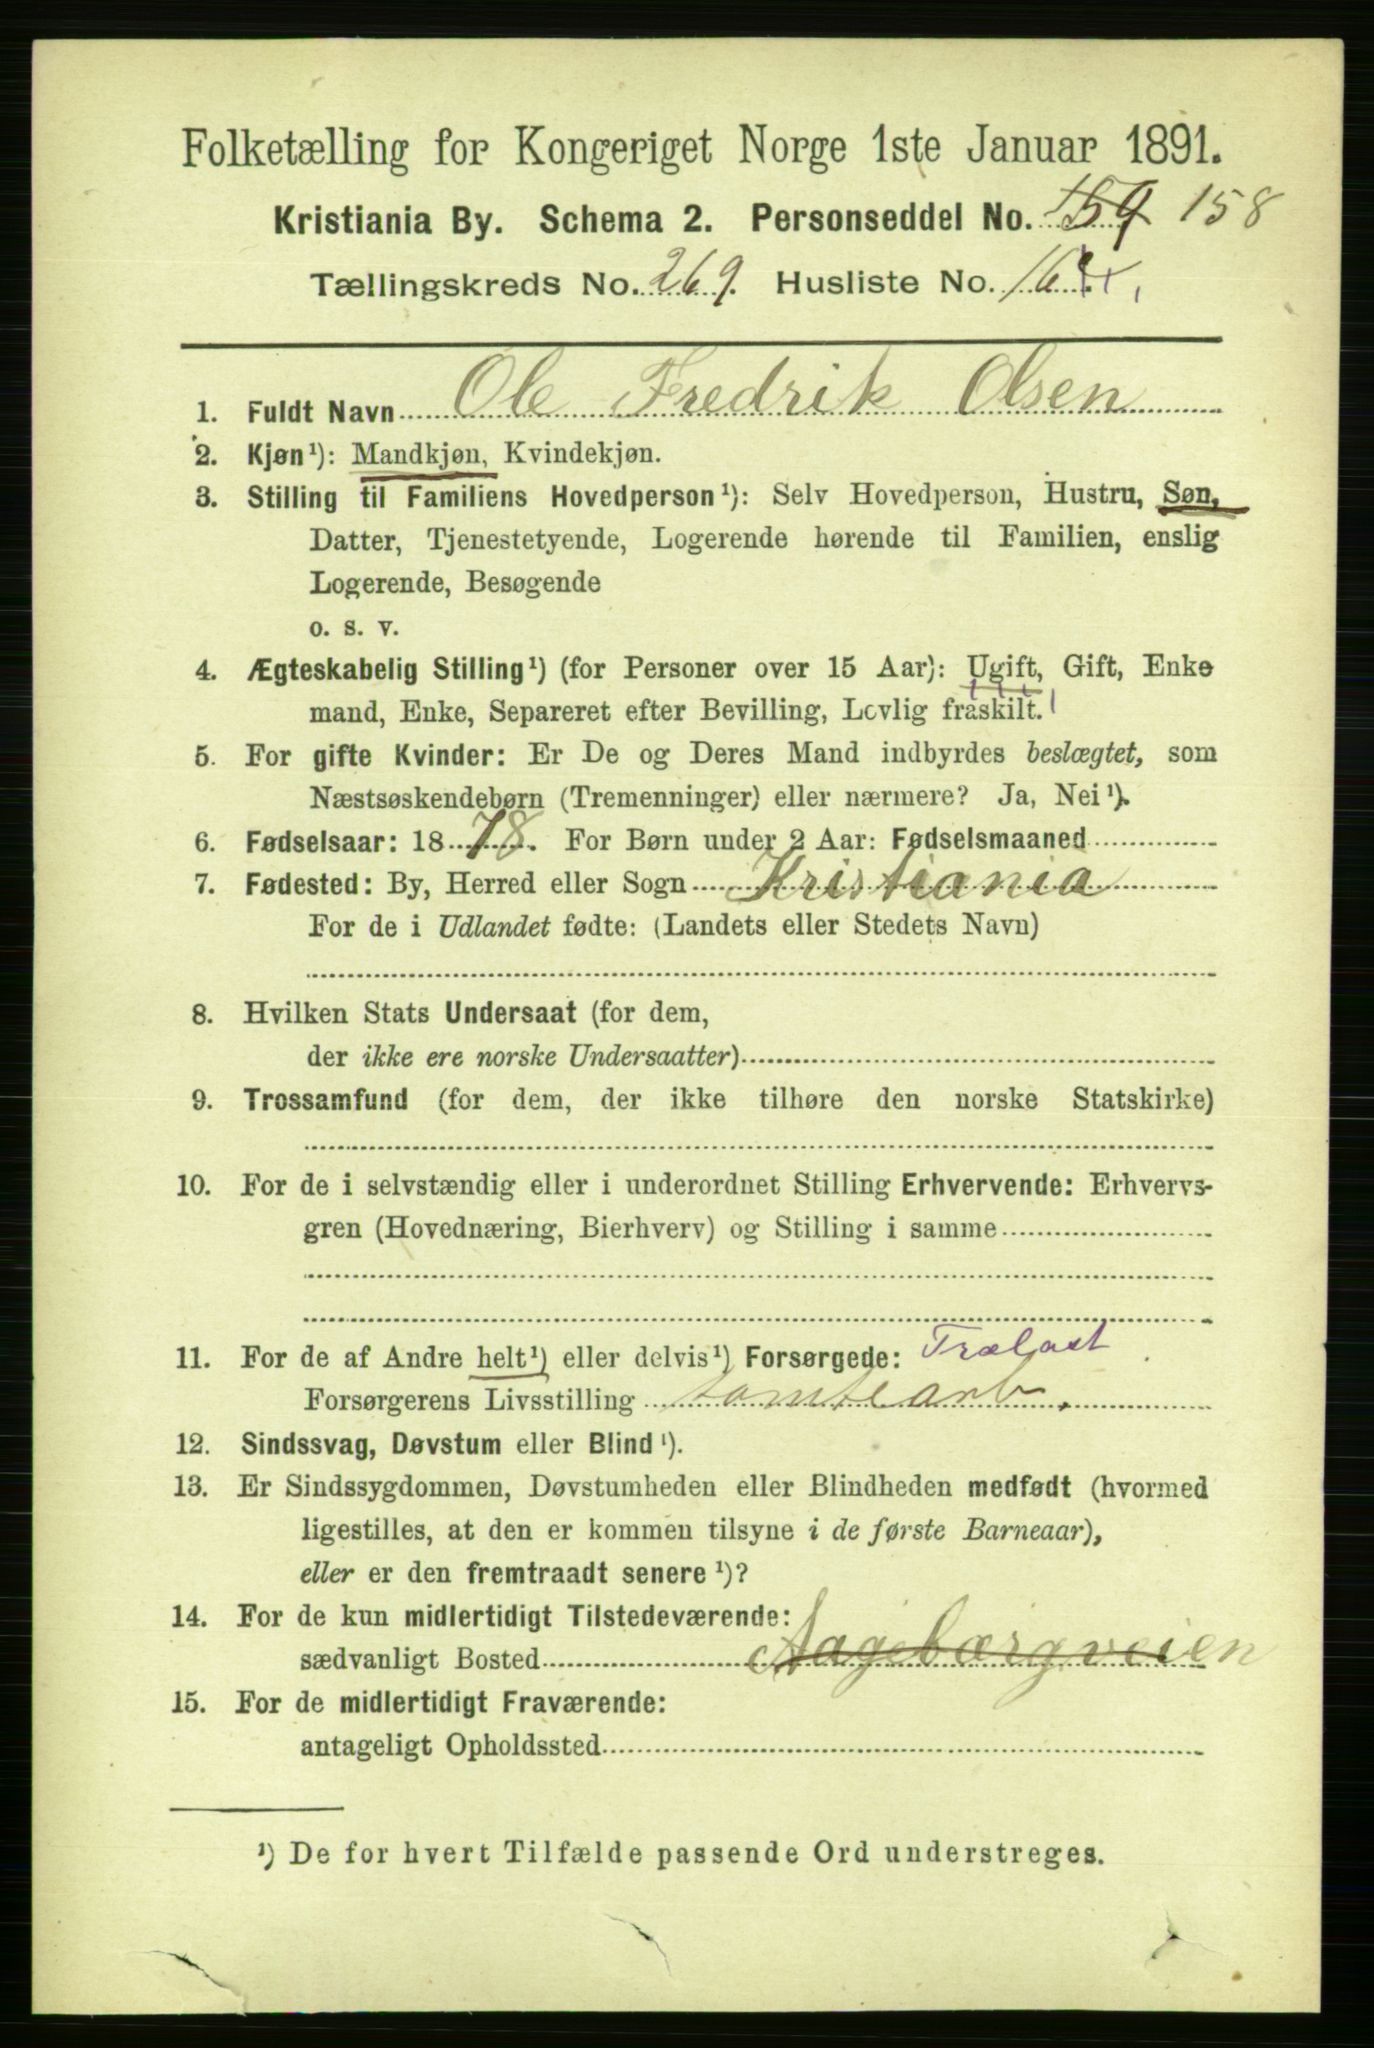 Folketælling for Kongeriget Norge 1ste Januar 1891.
Kristiania By. Schema 2. Personseddel No. 159 158
Tællingskreds No. 269. Husliste No. 16
1. Fuldt Navn Ole Fredrik Olsen
2. Kjøn¹): Mandkjøn, Kvindekjøn.
3. Stilling til Familiens Hovedperson¹): Selv Hovedperson, Hustru, Søn,
Datter, Tjenestetyende, Logerende hørende til Familien, enslig
Logerende, Besøgende
o. s. v.
4. Ægteskabelig Stilling¹) (for Personer over 15 Aar): Ugift, Gift, Enke
mand, Enke, Separeret efter Bevilling, Lovlig fraskilt.
5. For gifte Kvinder: Er De og Deres Mand indbyrdes beslægtet, som
Næstsøskendebørn (Tremenninger) eller nærmere? Ja, Nei¹).
6. Fødselsaar: 1878. For Børn under 2 Aar: Fødselsmaaned
7. Fødested: By, Herred eller Sogn Kristiania
For de i Udlandet fødte: (Landets eller Stedets Navn)
8. Hvilken Stats Undersaat (for dem,
der ikke ere norske Undersaatter)
9. Trossamfund (for dem, der ikke tilhøre den norske Statskirke)
10. For de i selvstændig eller i underordnet Stilling Erhvervende: Erhvervs-
gren (Hovednæring, Bierhverv) og Stilling i samme
11. For de af Andre helt¹) eller delvis¹) Forsørgede: Trælast
Forsørgerens Livsstilling tomtearb.
12. Sindssvag, Døvstum eller Blind¹).
13. Er Sindssygdommen, Døvstumheden eller Blindheden medfødt (hvormed
ligestilles, at den er kommen tilsyne i de første Barneaar),
eller er den fremtraadt senere¹)?
14. For de kun midlertidigt Tilstedeværende:
sædvanligt Bosted Aagebærgveien
15. For de midlertidigt Fraværende:
antageligt Opholdssted
¹) De for hvert Tilfælde passende Ord understreges.